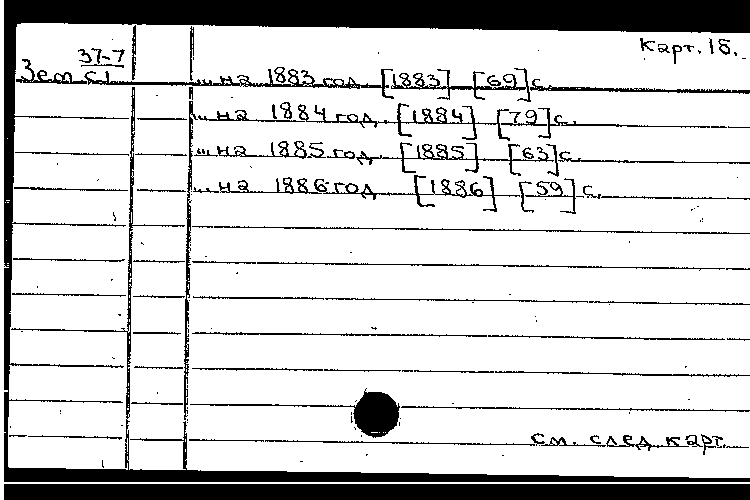 Карт. 18.
37-7
Зем с1
... на 1883 год. [1883] [69] с.
... на 1884 год. [1884] [79] с.
... на 1885 год. [1885] [63] с.
... на 1886 год [1886] [59] с.
см. след карт.